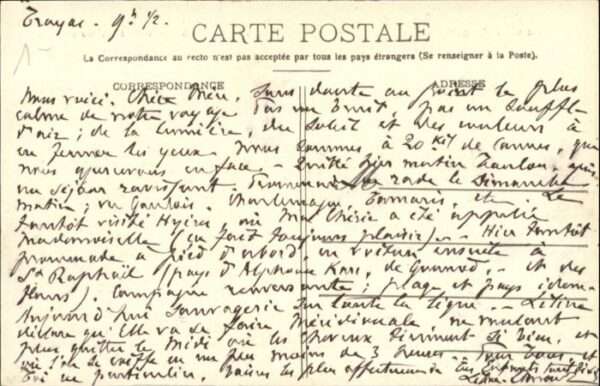 Trayas. 9h 1/2.
CARTE POSTALE
La Correspondance au recto n'est pas acceptée par tous les pays étrangers (Se renseigner à la Poste).
CORRESPONDANCE
ADRESSE
Nous voici, Chère Mère, sans doute au point le plus
calme de notre voyage. Pas un bruit, pas un souffle
d'air; de la lumière, du soleil et des couleurs à
en fermer les yeux. Nous sommes à 20 Kil. de Cannes, que
nous apercevons en face. Quitté hier matin Toulon, après
un séjour ravissant. Promenade en rade le Dimanche
matin; vu Gaulois, Charlemagne, Tamaris, etc. Le
tantôt visité Hyères, où ma Chérie a été appelée
mademoiselle (ça fait toujours plaisir). Hier tantôt
promenade à pied d'abord, en voiture ensuite à
St Raphaël (pays d'Alphonse Karr, de Gounod, et des
fleurs). Campagne renversante; plage et pays idem.
Aujourd'hui sauvagerie sur toute la ligne.
qu'Elle va se faire Méridionale, ne voulant
plus quitter le Midi où les
plus moins de 3 heures. Pour vous, et
en particulier, baisers les plus affectueux de Vos Enfants